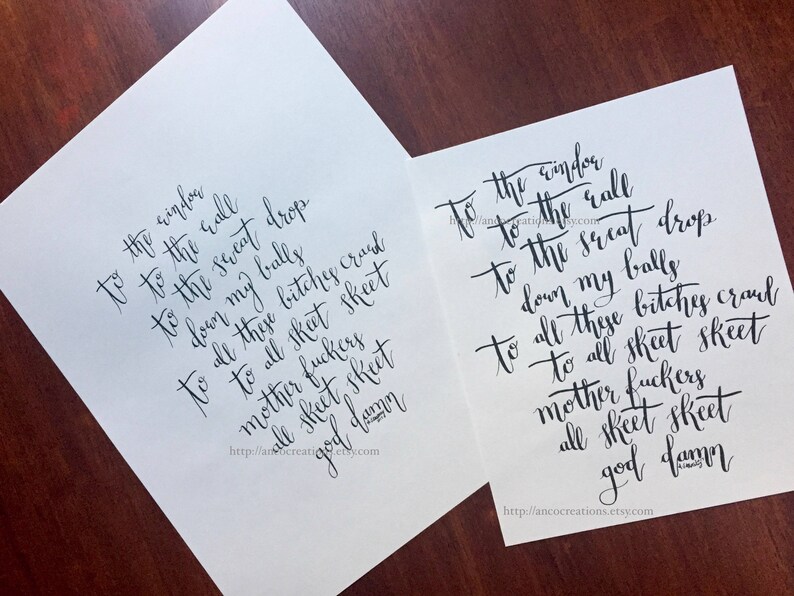 to the window
to the wall
to the sweat drop
down my balls
to all these bitches crawl
to all skeet skeet
mother fuckers
all skeet skeet
god damn
http://ancocreations.etsy.com
to the window
http://ancocreations.etsy.com
to the wall
to the sweat drop
down my balls
to all these bitches crawl
to all skeet skeet
mother fuckers
all skeet skeet
god damn
http://ancocreations.etsy.com